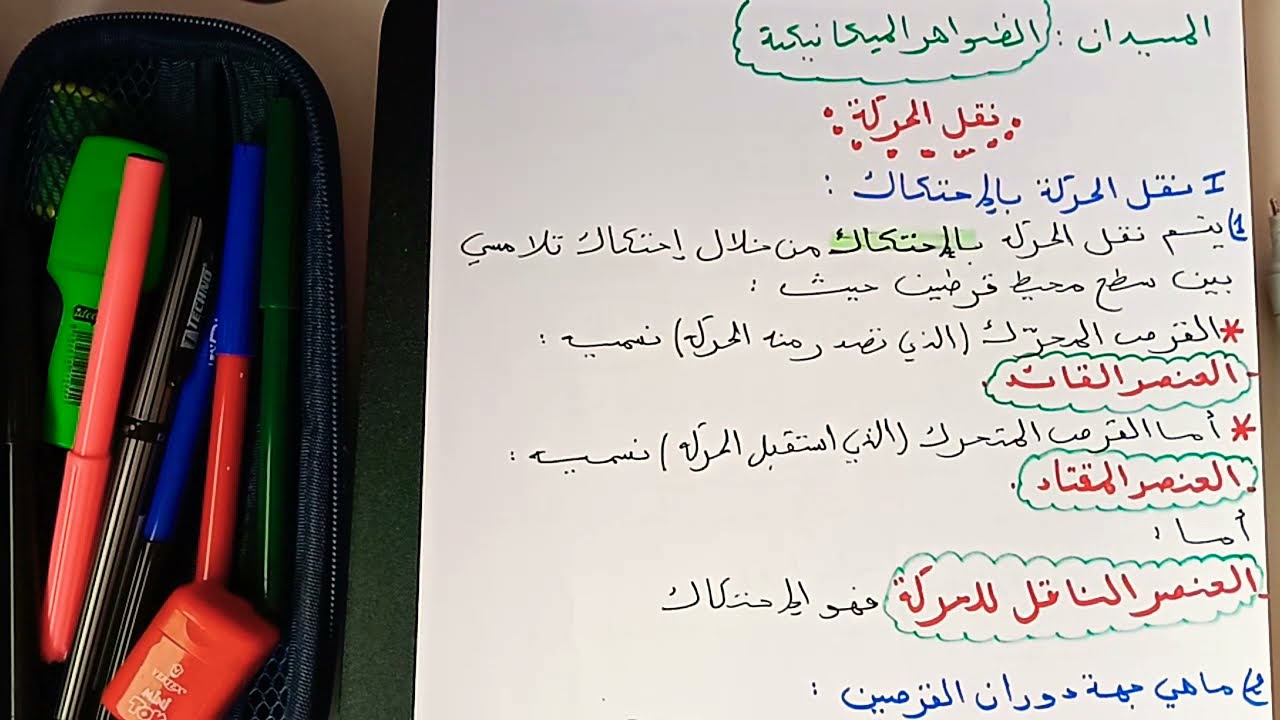 الميدان : الظواهر الميكانيكية
نقل الحركة
I نقل الحركة بالإحتكاك :
1) يتم نقل الحركة بالإحتكاك من خلال إحتكاك تلامسي
بين سطح محيط قرصين حيث :
* القرص المحرّك (الذي تصدر منه الحركة) نسميه :
العنصر القائد
* أما القرص المتحرك (الذي استقبل الحركة) نسميه :
العنصر المقتاد
أما :
العنصر الناقل للحركة فهو الإحتكاك
2) ماهي جهة دوران القرصين :
TECHNO
VERTEX
MINI